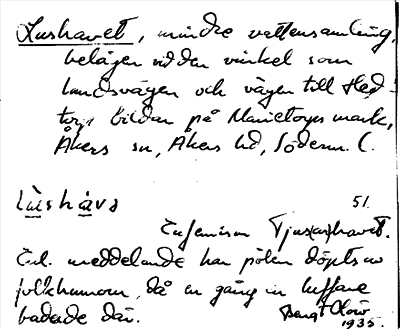 Lushavet, mindre vattensamling,
belägen vid den vinkel som
landsvägen och vägen till Hed-
torp bildar på Marietorps mark,
Åkers sn, Åkers hd, Söderm. l.
lùshàvə 51.
Eufemism Tjus(ar)havet.
Enl. meddelande har pölen döpts av
folkhumorn, då en gång en luffare
badade där. Bengt Olow
1935.